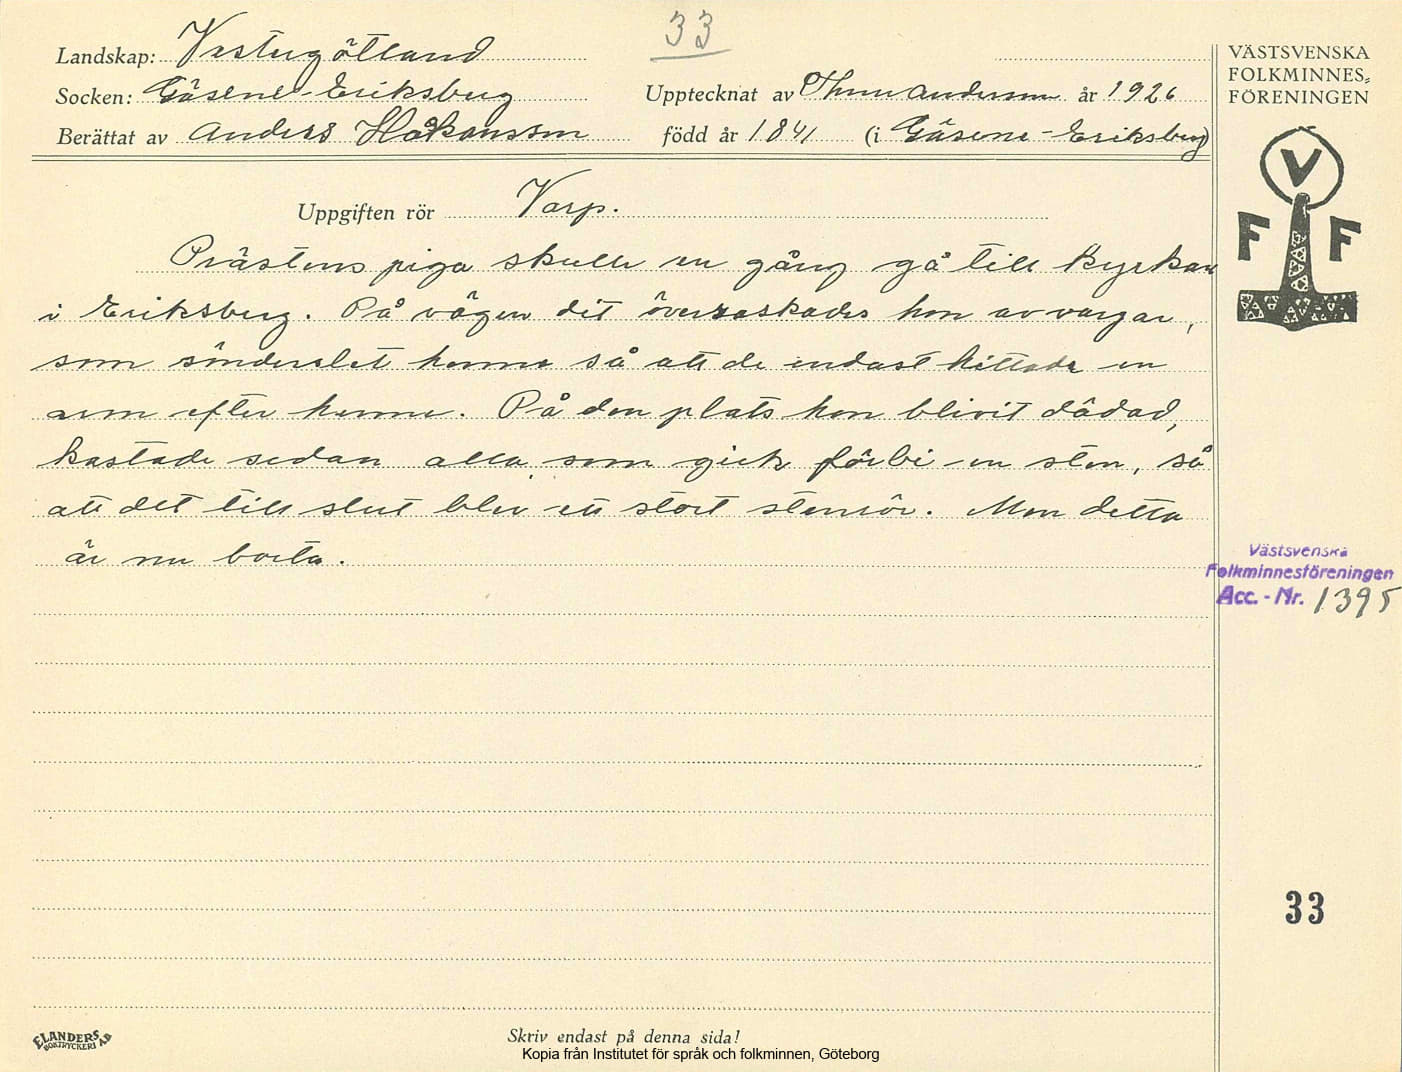 33
Landskap: Västergötland
Socken: Gäsene-Eriksberg
Upptecknat av Thure Andersson år 1926
Berättat av Anders Håkansson född år 1841 (i Gäsene-Eriksberg)
VÄSTSVENSKA
FOLKMINNES-
FÖRENINGEN
V
F F
Uppgiften rör Varp.
Prästens piga skulle en gång gå till kyrkan
i Eriksberg. På vägen dit överraskades hon av vargar,
som sönderslet henne så att de endast hittade en
arm efter henne. På den plats hon blivit dödad,
kastade sedan alla som gick förbi en sten, så
att det till slut blev ett stort stenrör. Men detta
är nu borta.
Västsvenska
Folkminnesföreningen
Acc. - Nr. 1395
33
ELANDERS
BOKTRYCKERI AB
Skriv endast på denna sida!
Kopia från Institutet för språk och folkminnen, Göteborg